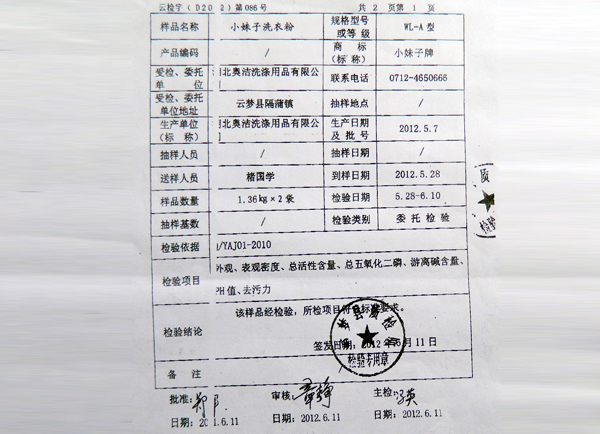 云检字( D20 2)第086号 共 2 页第 1 页
样品名称 小妹子洗衣粉 规格型号或等级 WL-A 型
产品编码 / 商标(标称) 小妹子牌
受检、委托单位 北奥洁洗涤用品有限公 联系电话 0712-4650666
受检、委托单位地址 云梦县隔蒲镇 抽样地点 /
生产单位(标称) 北奥洁洗涤用品有限公 生产日期及批号 2012.5.7
抽样人员 / 抽样日期 /
送样人员 楮国学 到样日期 2012.5.28
样品数量 1.36kg×2袋 检验日期 5.28-6.10
抽样基数 / 检验类别 委托检验
检验依据 /YAJ01-2010
检验项目 外观、表观密度、总活性含量、总五氧化二磷、游离碱含量、
PH值、去污力
检验结论 该样品经检验,所检项目符合标准要求。
签发日期:2012年6月11日
检验专用章
备注
批准: 审核: 主检:
日期:2 1.6.11 日期:2012.6.11 日期:2012.6.11
质
检验